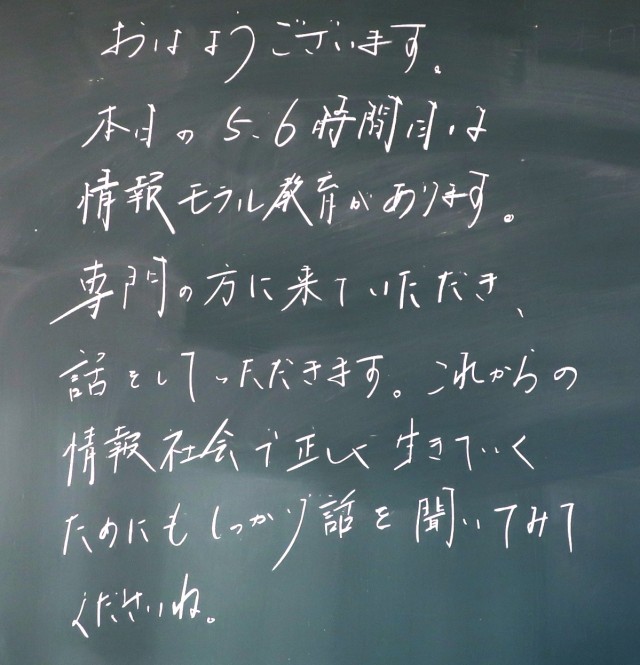 おはようございます。
本日の5、6時間目は
情報モラル教育があります。
専門の方に来ていただき、
話をしていただきます。これからの
情報社会で正しく生きていく
ためにもしっかり話を聞いてみて
くださいね。